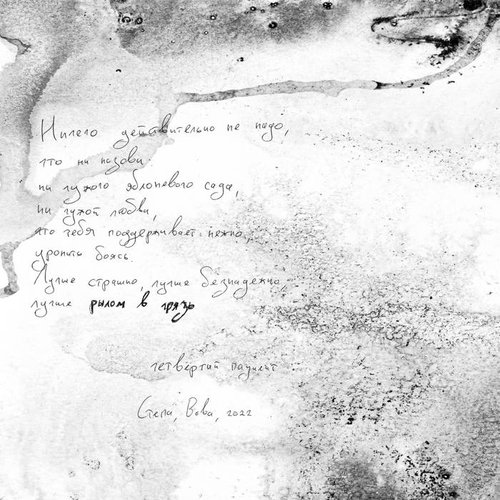 Ничего действительно не надо,
что ни назови:
ни чужого яблоневого сада,
ни чужой любви,
что тебя поддерживает нежно,
уронить боясь.
Лучше страшно, лучше безнадежно,
лучше рылом в грязь
четвёртый пациент
Степа, Вова, 2022